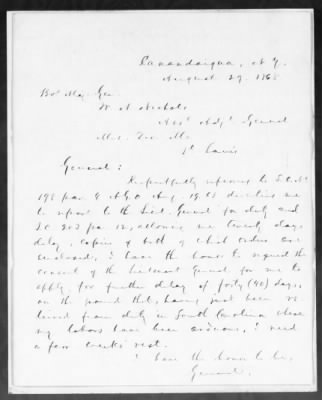 Canandaigua, N.Y.
August 29, 1868
Bvt Maj. Gen.
W. A. Nichols
Asst Adjt General
Mil. Div. Mo.
St. Louis
General:
Respectfully referring to S.O. No
198 par. 4 A.G.O. Aug. 19.68 directing me
to report to the Lieut. General for duty and
S.O. 203 par 12, allowing me twenty days
delay, copies of both of which orders are
enclosed, I have the honor to request the
consent of the Lieutenant General for me to
apply for further delay of forty (40) days,
on the ground that, having just been re
lieved from duty in South Carolina where
my labors have been arduous, I need
a few weeks' rest.
I have the honor to be,
General,